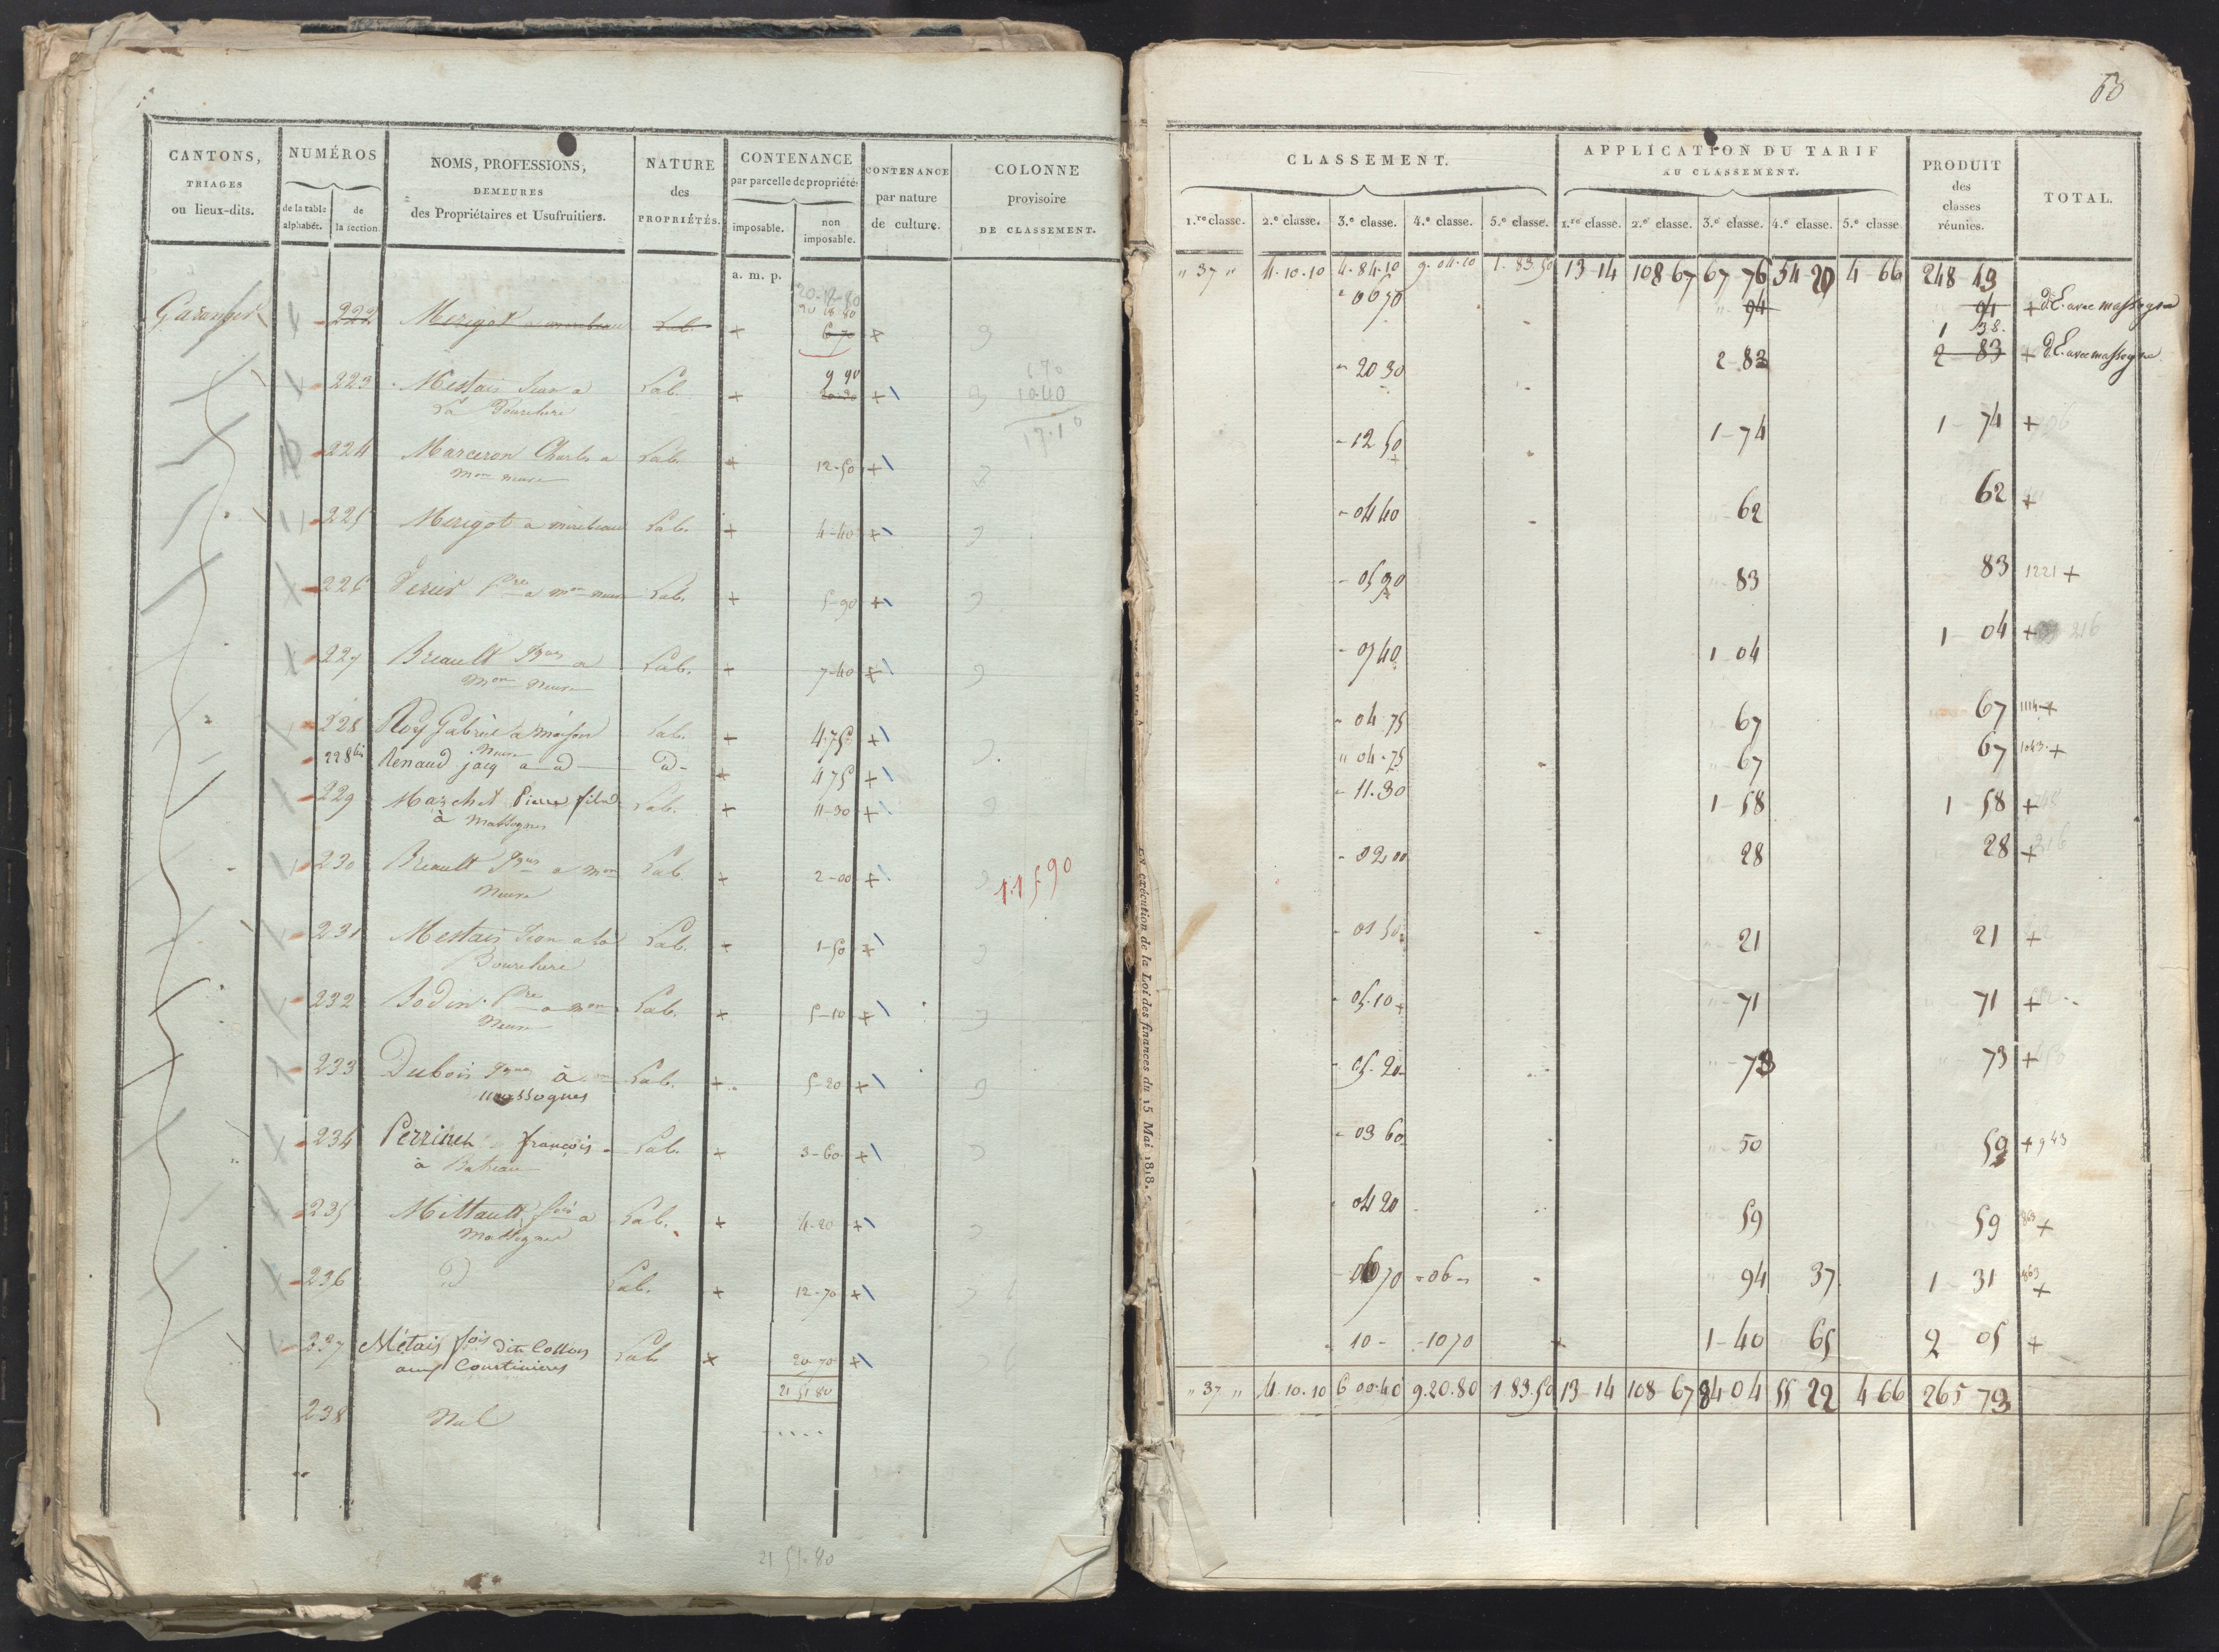 63
CANTONS,
TRIAGES
ou lieux-dits.
NUMÉROS
de la table alphabét.
de la section.
NOMS, PROFESSIONS,
DEMEURES
des Propriétaires et Usufruitiers.
NATURE
des
PROPRIÉTÉS.
CONTENANCE
par parcelle de propriété
imposable.
non imposable.
CONTENANCE
par nature
de culture.
COLONNE
provisoire
DE CLASSEMENT.
a. m. p.
20-18-80
222 Merigot a mirebeau Lab. + 6-70 +
9 90
223 Mestais Jean a Lab. + 20-30 +
La Bourchere
6 70
10 40
17.10
224 Marceron Charles a Lab. + 12-50 +
mon neuve
225 Merigot a mirebeau Lab. + 4-40 +
226 Perès Pre a mon neuve Lab. + 5-90 +
227 Breault a Lab. + 7-40 +
mon neuve
228 Roy Gabriel a maison Lab. + 4.75 +
neuve
228 bis Renaud jacq a d d + 4 75 +
229 Marchet Pierre fils Lab. + 11-30 +
à Massognes
230 Breault a mon Lab. + 2-00 +
neuve
11590
231 Mestais Jean a la Lab. + 1-50 +
Bourchere
232 Bodin Pre a mon Lab. + 5-10 +
neuve
233 Dubois à Lab. + 5-20 +
massognes
234 Perrinet françois Lab. + 3-60 +
à
235 Mittault fois a Lab. + 4-20 +
Massognes
236 d Lab. + 12-70 +
237 Métais fois dit Collon Lab + 20-70 +
aux Courtinieres
21 51 80
238 Nul
21 51.80
CLASSEMENT.
1.re classe. 2.e classe. 3.e classe. 4.e classe. 5.e classe.
APPLICATION DU TARIF
AU CLASSEMENT.
1.re classe. 2.e classe. 3.e classe. 4.e classe. 5.e classe
PRODUIT
des
classes
réunies.
TOTAL.
" 37 " 4.10.10 4.84.10 9.04.10 1.83.50 13-14 108 67 67 76 54-20 4-66 248-49
" 06 70 " 94 94 + d.C. avec massogne
1 38.
- 20 30 2-83 2-83 + d.C. avec massogne
- 12 50 1-74 1-74 +
- 04 40 62 62 +
- 05 90 83 83 1221 +
- 07 40 1-04 1-04 + 216
- 04.75 67 67 1114 +
" 04-75 67 67 1043 +
- 11.30 1-58 1-58 +
- 02 00 28 28 + 216
- 01 50 21 21 +
- 05.10 71 71 +
- 05.20 73 73 +
- 03 60 50 50 + 943
04 20 59 59 863 +
- 06 70 - 06 - 94 37 1-31 863 +
- 10 - -10 70 1-40 65 2-05 +
" 37 " 4.10.10 6 00.40 9.20.80 1 83.50 13-14 108-67 84 04 55 22 4-66 265 73
En exécution de la Loi des finances du 15 Mai 1818.